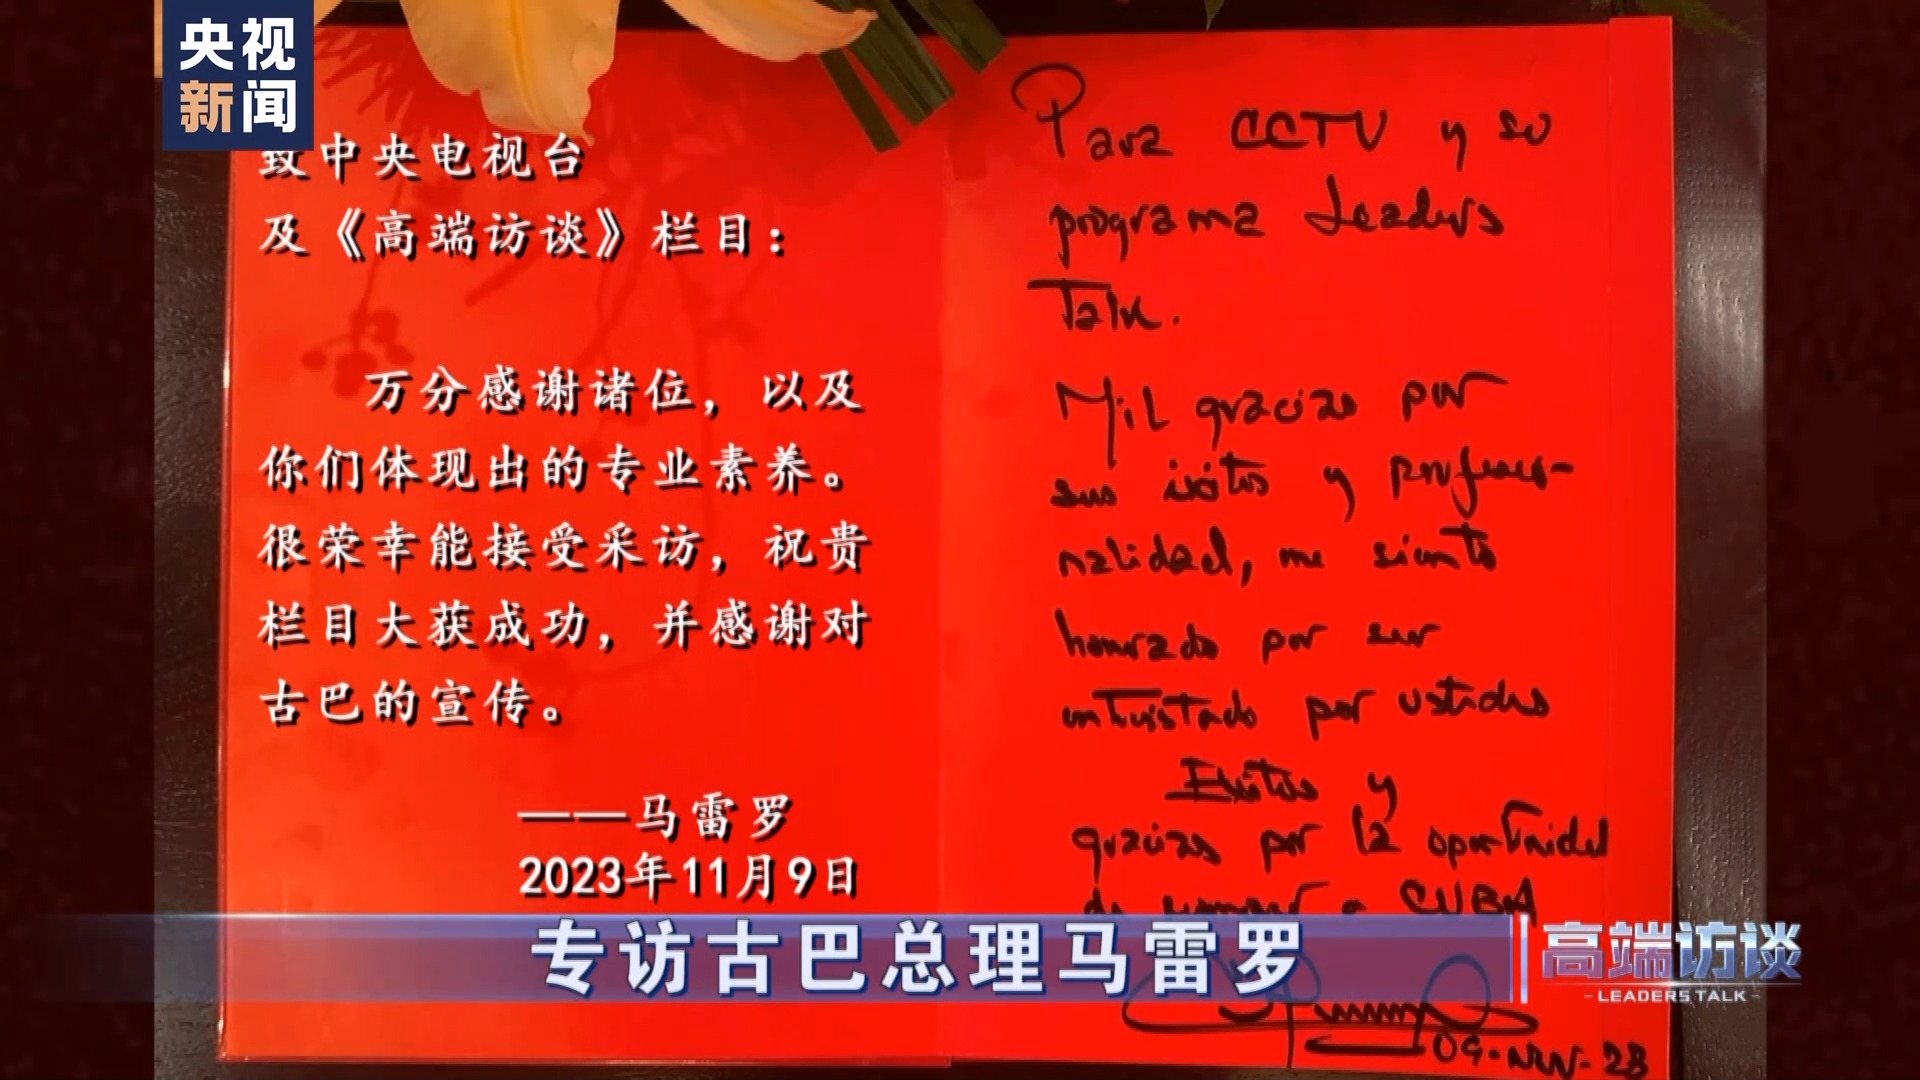 央视
新闻
致中央电视台
及《高端访谈》栏目：
万分感谢诸位，以及
你们体现出的专业素养。
很荣幸能接受采访，祝贵
栏目大获成功，并感谢对
古巴的宣传。
——马雷罗
2023年11月9日
Para CCTV y su
programa Leaders
Talk.
Mil gracias por
sus éxitos y profesio-
nalidad, me siento
honrado por ser
entrevistado por ustedes
Exitos y
gracias por la oportunidad
de a CUBA
09-Nov-23
专访古巴总理马雷罗
高端访谈
LEADERS TALK